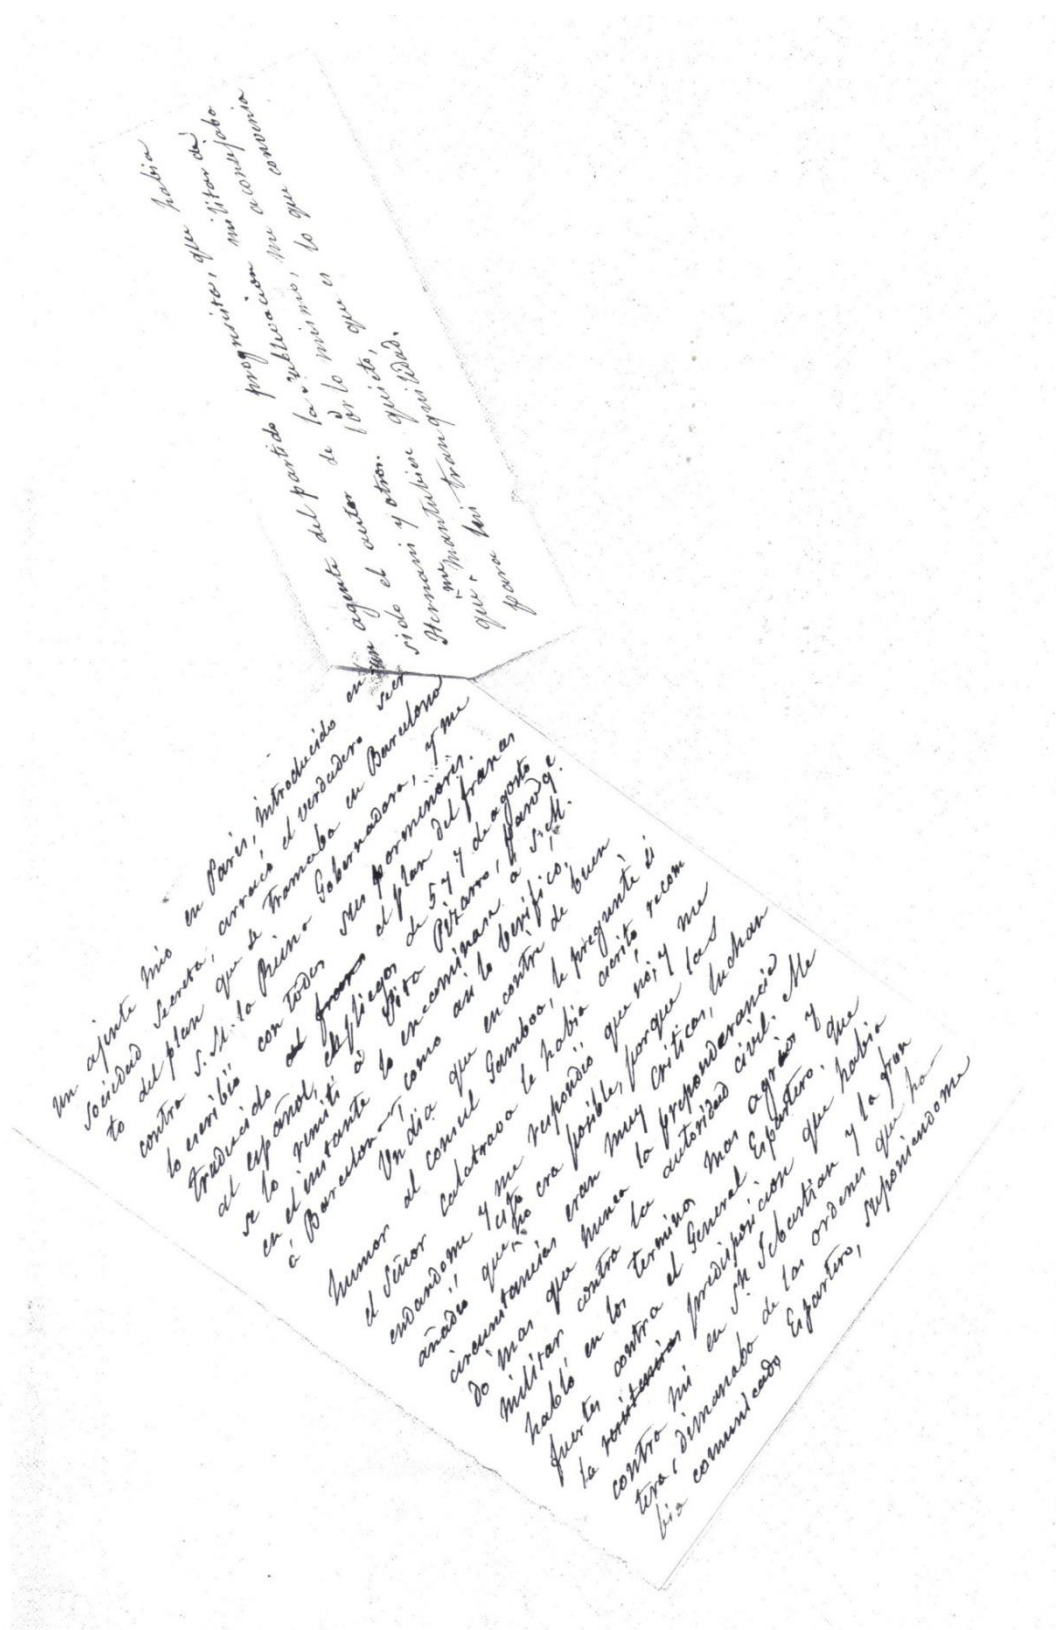 Un ajente mio en Paris, introducido en
sociedad secreta, arrancó el verdadero secre
to del plan que se tramaba en Barcelona
contra S.M. la Reina Gobernadora, y me
lo escribió con todos sus pormenores.
Traducido el plan del frances
al español, pliegos de 5 y 7 de agosto
se lo remiti á Pita Pizarro, para qe
en el instante lo encaminase a S.M.
á Barcelona, como asi lo berificó.
Un dia que encontré de buen
humor al consul Gamboa, le pregunté si
el Señor Calatrava le habia escrito recom
endandome y me respondió que no, y me
añadió que esto no era posible, porque las
circunstancias eran muy criticas, luchan
do mas que nunca la preponderancia
militar contra la autoridad civil. Me
habló en los terminos mas agrios y
fuertes contra el General Espartero, que
la predisposicion que habia
contra mi en Sn Sebastian y la fron
tera, dimanaba de las ordenes que ha
bia comunicado Espartero, suponiendome
un agente del partido progresista, que habia
sido el autor de la sublevacion militar de
Hernani y otros. Por lo mismo, me aconsejaba
que me mantubiese quieto, que es lo que convenia
para mi tranquilidad.